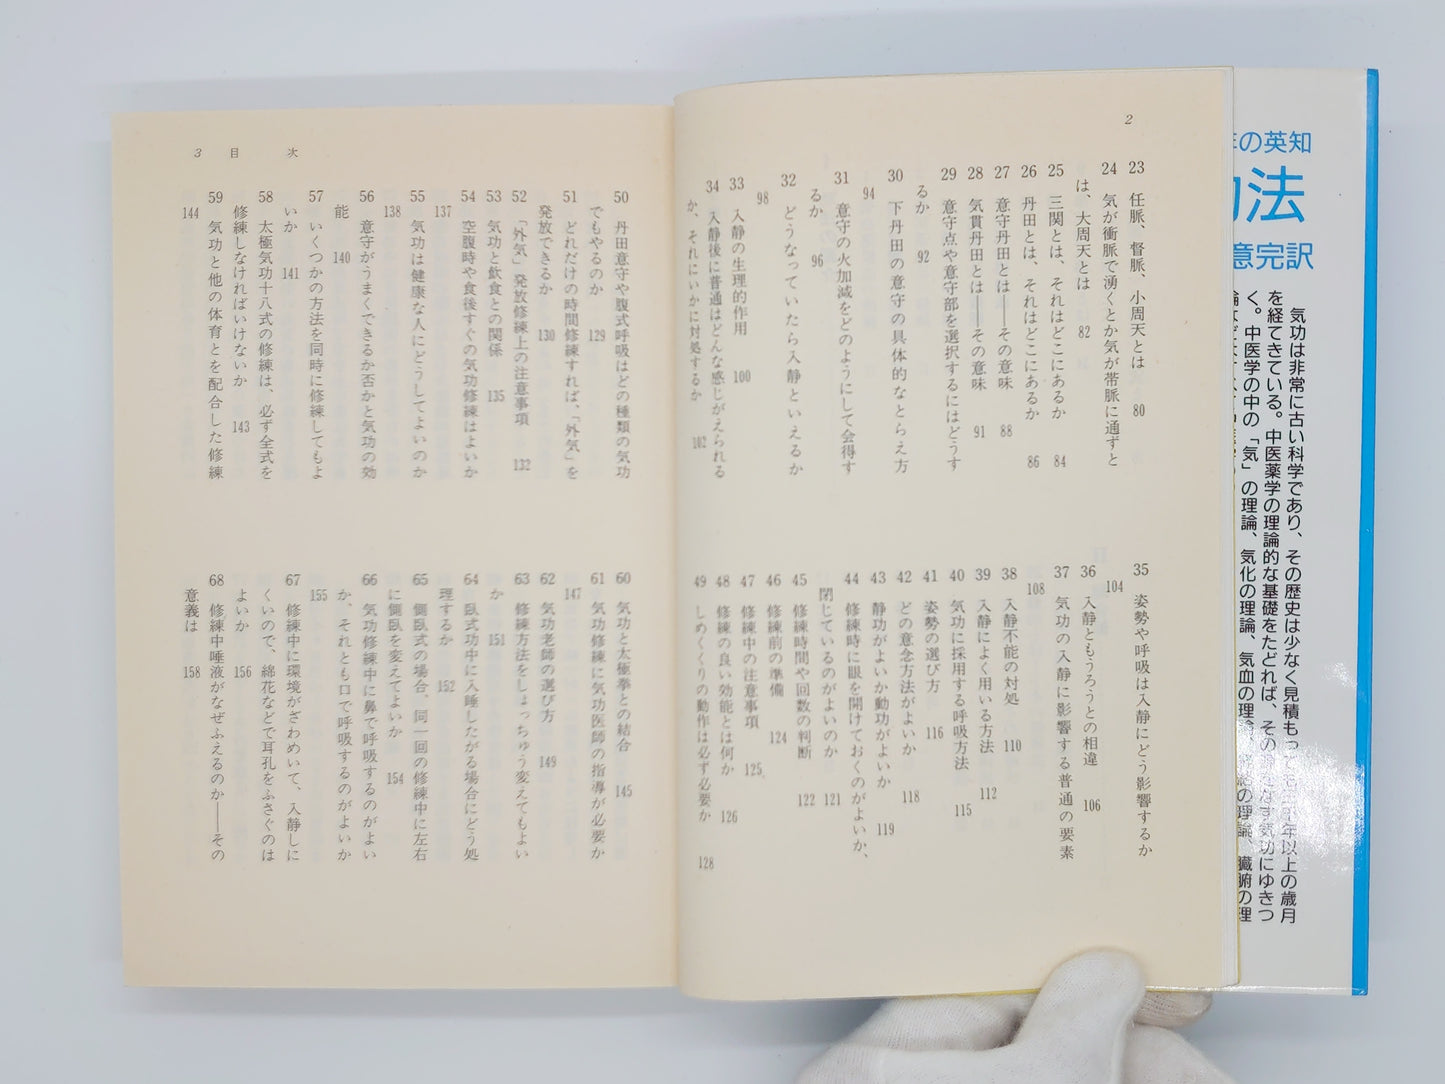 2
23 任脈、督脈、小周天とは 80
24 気が衝脈で湧くとか気が帯脈に通ずと
は、大周天とは 82
25 三関とは、それはどこにあるか 84
26 丹田とは、それはどこにあるか 86
27 意守丹田とは――その意味 88
28 気貫丹田とは――その意味 91
29 意守点や意守部を選択するにはどうす
るか 92
30 下丹田の意守の具体的なとらえ方
94
31 意守の火加減をどのようにして会得す
るか 96
32 どうなっていたら入静といえるか
98
33 入静の生理的作用 100
34 入静後に普通はどんな感じがえられる
か、それにいかに対処するか 102
35 姿勢や呼吸は入静にどう影響するか
104
36 入静ともうろうとの相違 106
37 気功の入静に影響する普通の要素
108
38 入静不能の対処 110
39 入静によく用いる方法 112
40 気功に採用する呼吸方法 115
41 姿勢の選び方 116
42 どの意念方法がよいか 118
43 静功がよいか動功がよいか 119
44 修練時に眼を開けておくのがよいか、
閉じているのがよいのか 121
45 修練時間や回数の判断 122
46 修練前の準備 124
47 修練中の注意事項 125
48 修練の良い効能とは何か 126
49 しめくくりの動作は必ず必要か 128
3 目 次
50 丹田意守や腹式呼吸はどの種類の気功
でもやるのか 129
51 どれだけの時間修練すれば、「外気」を
発放できるか 130
52 「外気」発放修練上の注意事項 132
53 気功と飲食との関係 135
54 空腹時や食後すぐの気功修練はよいか
137
55 気功は健康な人にどうしてよいのか
138
56 意守がうまくできるか否かと気功の効
能 140
57 いくつかの方法を同時に修練してもよ
いか 141
58 太極気功十八式の修練は、必ず全式を
修練しなければいけないか 143
59 気功と他の体育とを配合した修練
144
60 気功と太極拳との結合 145
61 気功修練に気功医師の指導が必要か
147
62 気功老師の選び方 149
63 修練方法をしょっちゅう変えてもよい
か 151
64 臥式功中に入睡したがる場合にどう処
理するか 152
65 側臥式の場合、同一回の修練中に左右
に側臥を変えてよいか 154
66 気功修練中に鼻で呼吸するのがよいか
か、それとも口で呼吸するのがよいか
155
67 修練中に環境がざわめいて、入静しに
くいので、綿花などで耳孔をふさぐのは
よいか 156
68 修練中唾液がなぜふえるのか――その
意義は 158
年の英知
功法
意完訳
気功は非常に古い科学であり、その歴史は少なく見積もっても
年以上の歳月
を経てきている。中医薬学の理論的な基礎をたどれば、その
なす気功にゆきつ
く。中医学の中の「気」の理論、気化の理論、気血の理論、
の理論、臓腑の理